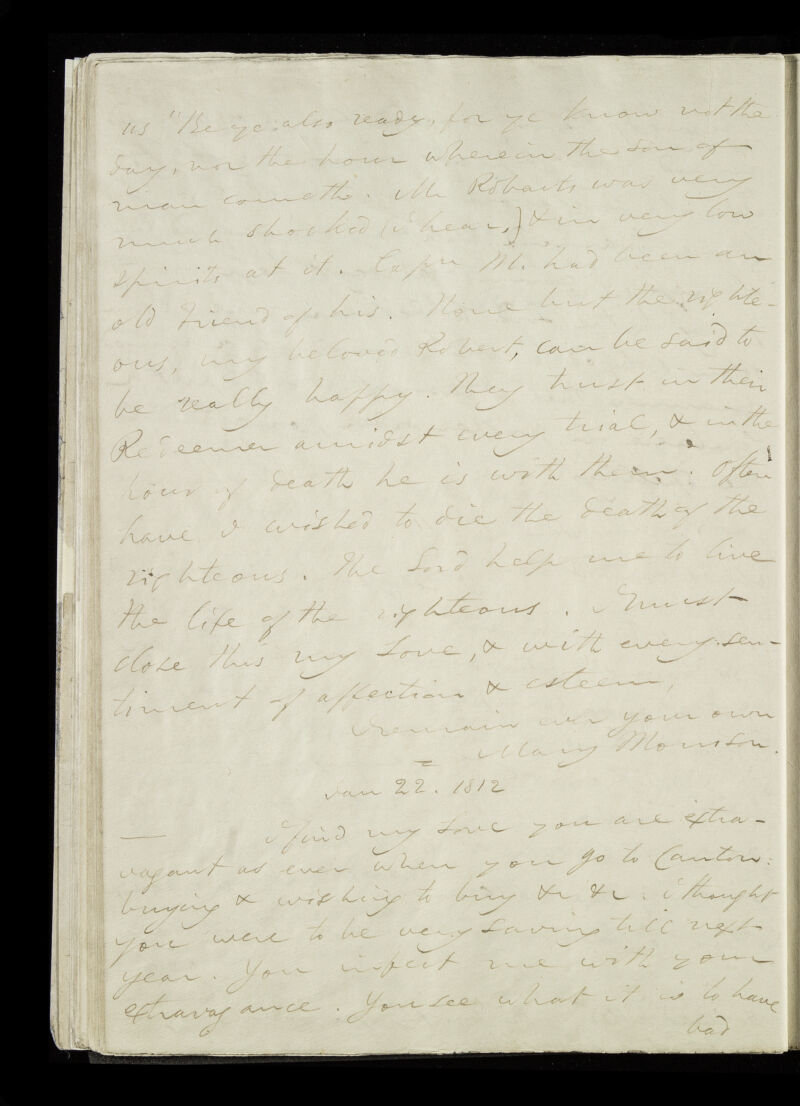 us "Be ye also ready, for ye know not the
day, nor the hour wherein the son of
man cometh. Mr Roberts was very
much shocked (I hear,) & in very low
spirits at it. Capn M. had been an
old friend of his. None but the righte-
ous, my beloved Robert, can be said to
be really happy. They trust in their
Redeemer amidst every trial, & in the
hour of death he is with them. Often
have I wished to die the death of the
righteous. The Lord help me to live
the life of the righteous. I must
close this my Love, & with every sen-
timent of affection & esteem,
I remain ever your own
Mary Morrison.
Jan 22. 1812
I find my Love you are extra-
vagant as ever when you go to Canton:
buying & wishing to buy &c &c. I thought
you were to be very saving till next
year. You infect me with your
extravagance. You see what it is to have
bad